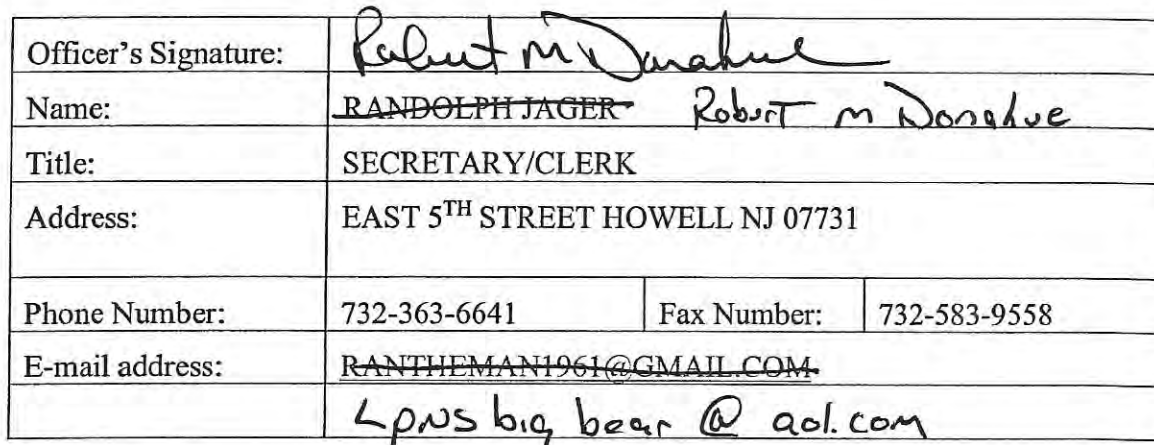 Officer's Signature: Robert M Donahue
Name: RANDOLPH JAGER Robert M Donahue
Title: SECRETARY/CLERK
Address: EAST 5TH STREET HOWELL NJ 07731
Phone Number: 732-363-6641 Fax Number: 732-583-9558
E-mail address: RANTHEMAN1961@GMAIL.COM
LPNS big bear @ aol.com